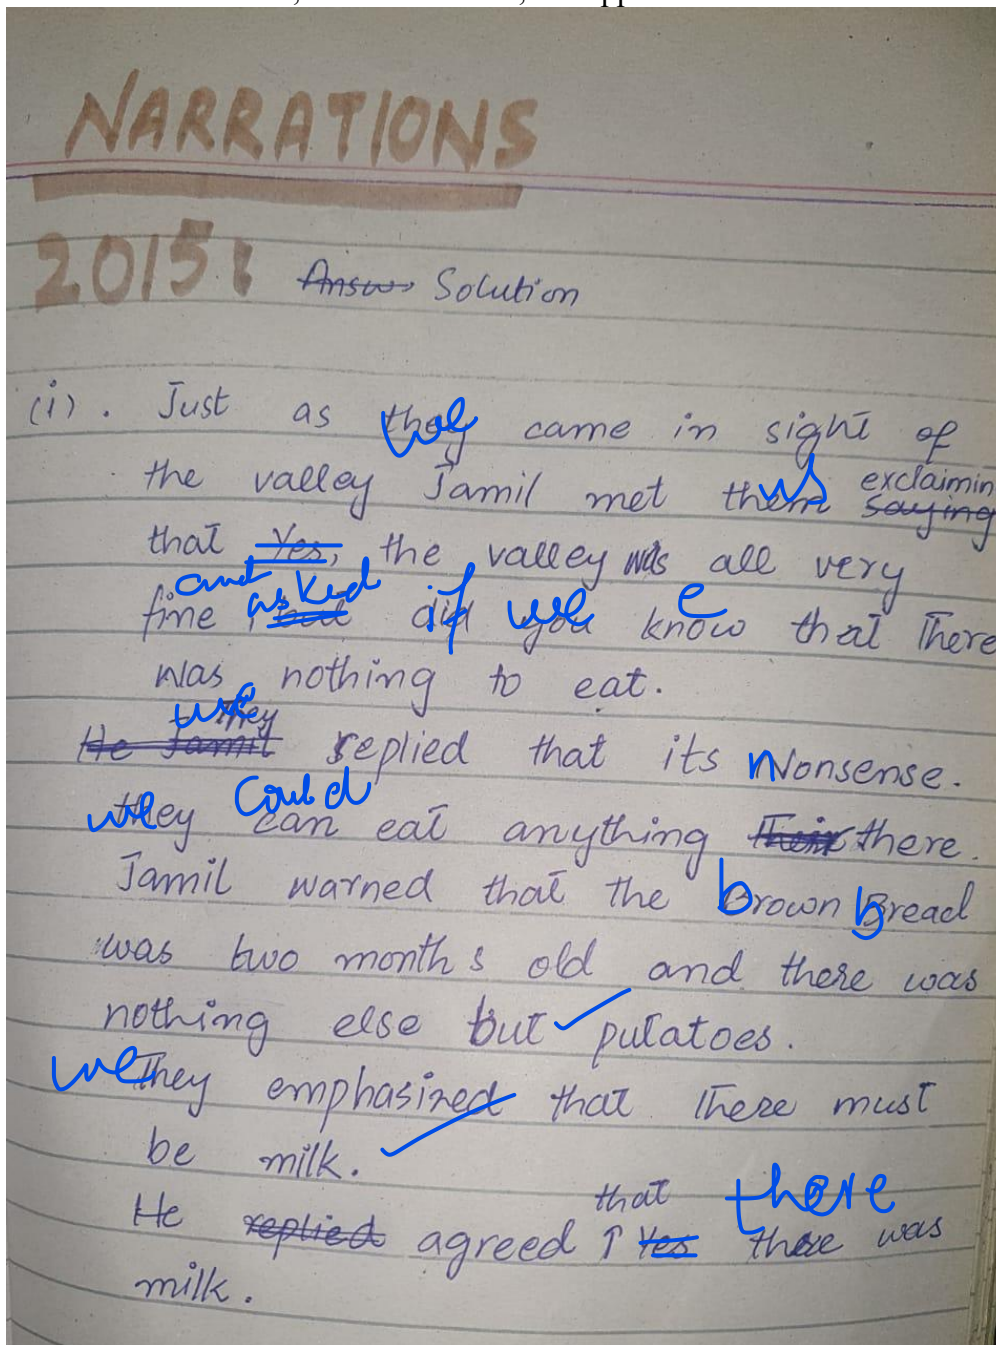 NARRATIONS
2015: Answ. Solution
(i). Just as they we came in sight of
the valley Jamil met them us exclaimin
saying
that Yes, the valley was all very
and asked if we e
fine but did you know that there
was nothing to eat.
we They
He Jamil replied that its Nonsense.
we they could can eat anything there.
Jamil warned that the brown bread
was two months old and there was
nothing else but putatoes.
we They emphasized that there must
be milk.
that there
He replied agreed Yes there was
milk.